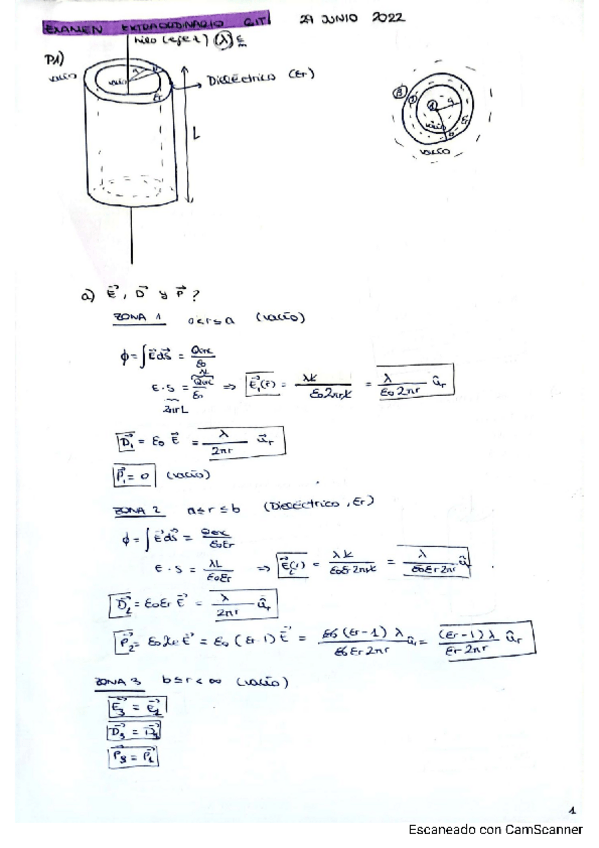 EXAMEN EXTRAORDINARIO GIT 29 JUNIO 2022
hilo (eje z) (λ)
P1)
vacío
a
b
vacío
Er
Dieléctrico (Er)
L
vacío
vacío
a) E⃗, D⃗ y P⃗ ?
ZONA 1 0≤r≤a (vacío)
ϕ = ∫E⃗ds⃗ = Qinc / ε0
E · S = Qinc / ε0 ⇒ E⃗1(r) = λL / ε0 2πrL = λ / ε0 2πr ûr
2πrL
D⃗1 = ε0 E⃗ = λ / 2πr ûr
P⃗1 = 0 (vacío)
ZONA 2 a≤r≤b (Dieléctrico, Er)
ϕ = ∫E⃗ds⃗ = / ε0εr
E · S = λL / ε0εr ⇒ E⃗2(r) = λL / ε0εr 2πrL = λ / ε0εr 2πr û
D⃗2 = ε0εr E⃗ = λ / 2πr ûr
P⃗2 = ε0 χe E⃗ = ε0 (εr-1) E⃗ = ε0 (εr-1) λ / ε0 εr 2πr ûr = (εr-1) λ / εr 2πr ûr
ZONA 3 b≤r<∞ (vacío)
E⃗3 = E⃗1
D⃗3 = D⃗1
P⃗3 = P⃗1
1
Escaneado con CamScanner